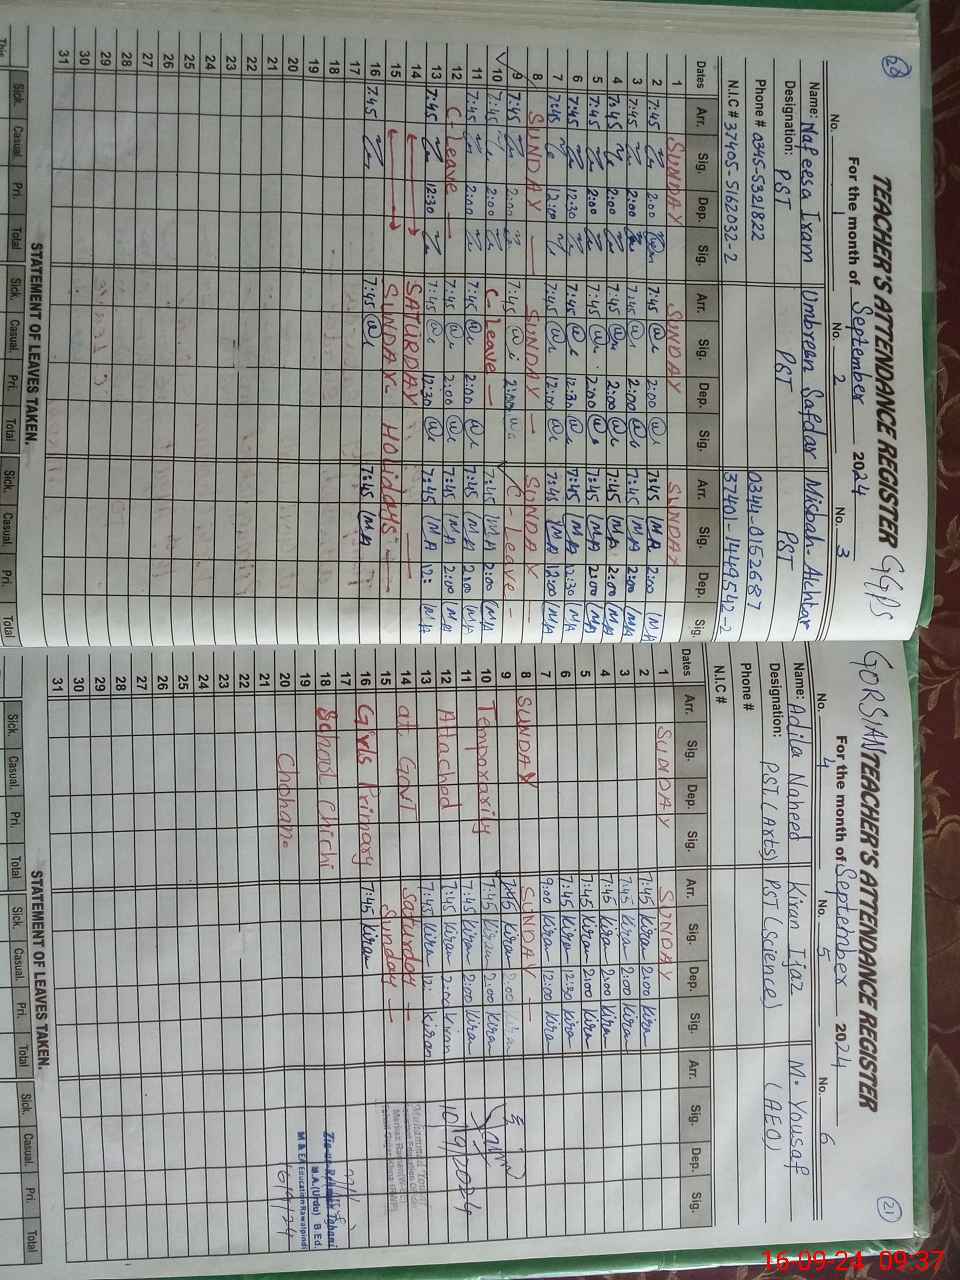 28
TEACHER'S ATTENDANCE REGISTER GGPS
For the month of September 2024
No. 1 No. 2 No. 3
Name: Nafeesa Ixam Umbreen Safdar Misbah Akhtar
Designation: PST PST PST
Phone # 0345-5321822 0344-0152687
N.I.C # 37405-5162032-2 37401-1449542-2
Dates Arr. Sig. Dep. Sig. Arr. Sig. Dep. Sig. Arr. Sig. Dep. Sig.
1 SUNDAY SUNDAY SUNDAY
2 7:45 2:00 7:45 2:00 7:45 MA 2:00 MA
3 7:45 2:00 7:45 2:00 7:45 MA 2:00 MA
4 7:45 2:00 7:45 2:00 7:45 MA 2:00 MA
5 7:45 2:00 7:45 2:00 7:45 MA 2:00 MA
6 7:45 12:30 7:45 12:30 7:45 MA 12:30 MA
7 7:45 12:00 7:45 12:00 7:45 MA 12:00 MA
8 SUNDAY SUNDAY SUNDAY
9 7:45 2:00 7:45 2:00 C-Leave
10 7:45 2:00 C-Leave 7:45 MA 2:00 MA
11 7:45 2:00 7:45 2:00 7:45 MA 2:00 MA
12 C-Leave 7:45 2:00 7:45 MA 2:00 MA
13 7:45 12:30 7:45 12:30 7:45 MA 12: MA
14 SATURDAY
15 SUNDAY HOLIDAYS
16 7:45 7:45 7:45 MA
17
18
19
20
21
22
23
24
25
26
27
28
29
30
31
STATEMENT OF LEAVES TAKEN.
Sick. Casual. Pri. Total Sick. Casual. Pri. Total Sick. Casual. Pri. Total
This
21
GORSIAN TEACHER'S ATTENDANCE REGISTER
For the month of September 2024
No. 4 No. 5 No. 6
Name: Adila Naheed Kiran Ijaz M. Yousaf
Designation: PST (Arts) PST (Science) (AEO)
Phone #
N.I.C #
Dates Arr. Sig. Dep. Sig. Arr. Sig. Dep. Sig. Arr. Sig. Dep. Sig.
1 SUNDAY SUNDAY
2 7:45 Kiran 2:00 Kiran
3 7:45 Kiran 2:00 Kiran
4 7:45 Kiran 2:00 Kiran
5 7:45 Kiran 2:00 Kiran
6 7:45 Kiran 12:30 Kiran
7 9:00 Kiran 12:00 Kiran
8 SUNDAY SUNDAY
9 7:45 Kiran 2:00 Kiran
10 Temporarily 7:45 Kiran 2:00 Kiran
11 7:45 Kiran 2:00 Kiran
12 Attached 7:45 Kiran 2:00 Kiran 10/9/2024
13 7:45 Kiran 12: Kiran
14 at Govt Saturday
15 Sunday
16 Girls Primary 7:45 Kiran
17
18 School Chichi
19
20 Chohan.
21
22
23
24
25
26
27
28
29
30
31
Zia-ur-Rehman
M.A.(Urdu) B.Ed.
M & EA Education Rawalpindi
16/9/24
STATEMENT OF LEAVES TAKEN.
Sick. Casual. Pri. Total Sick. Casual. Pri. Total Sick. Casual. Pri. Total
16-09-24 09:37